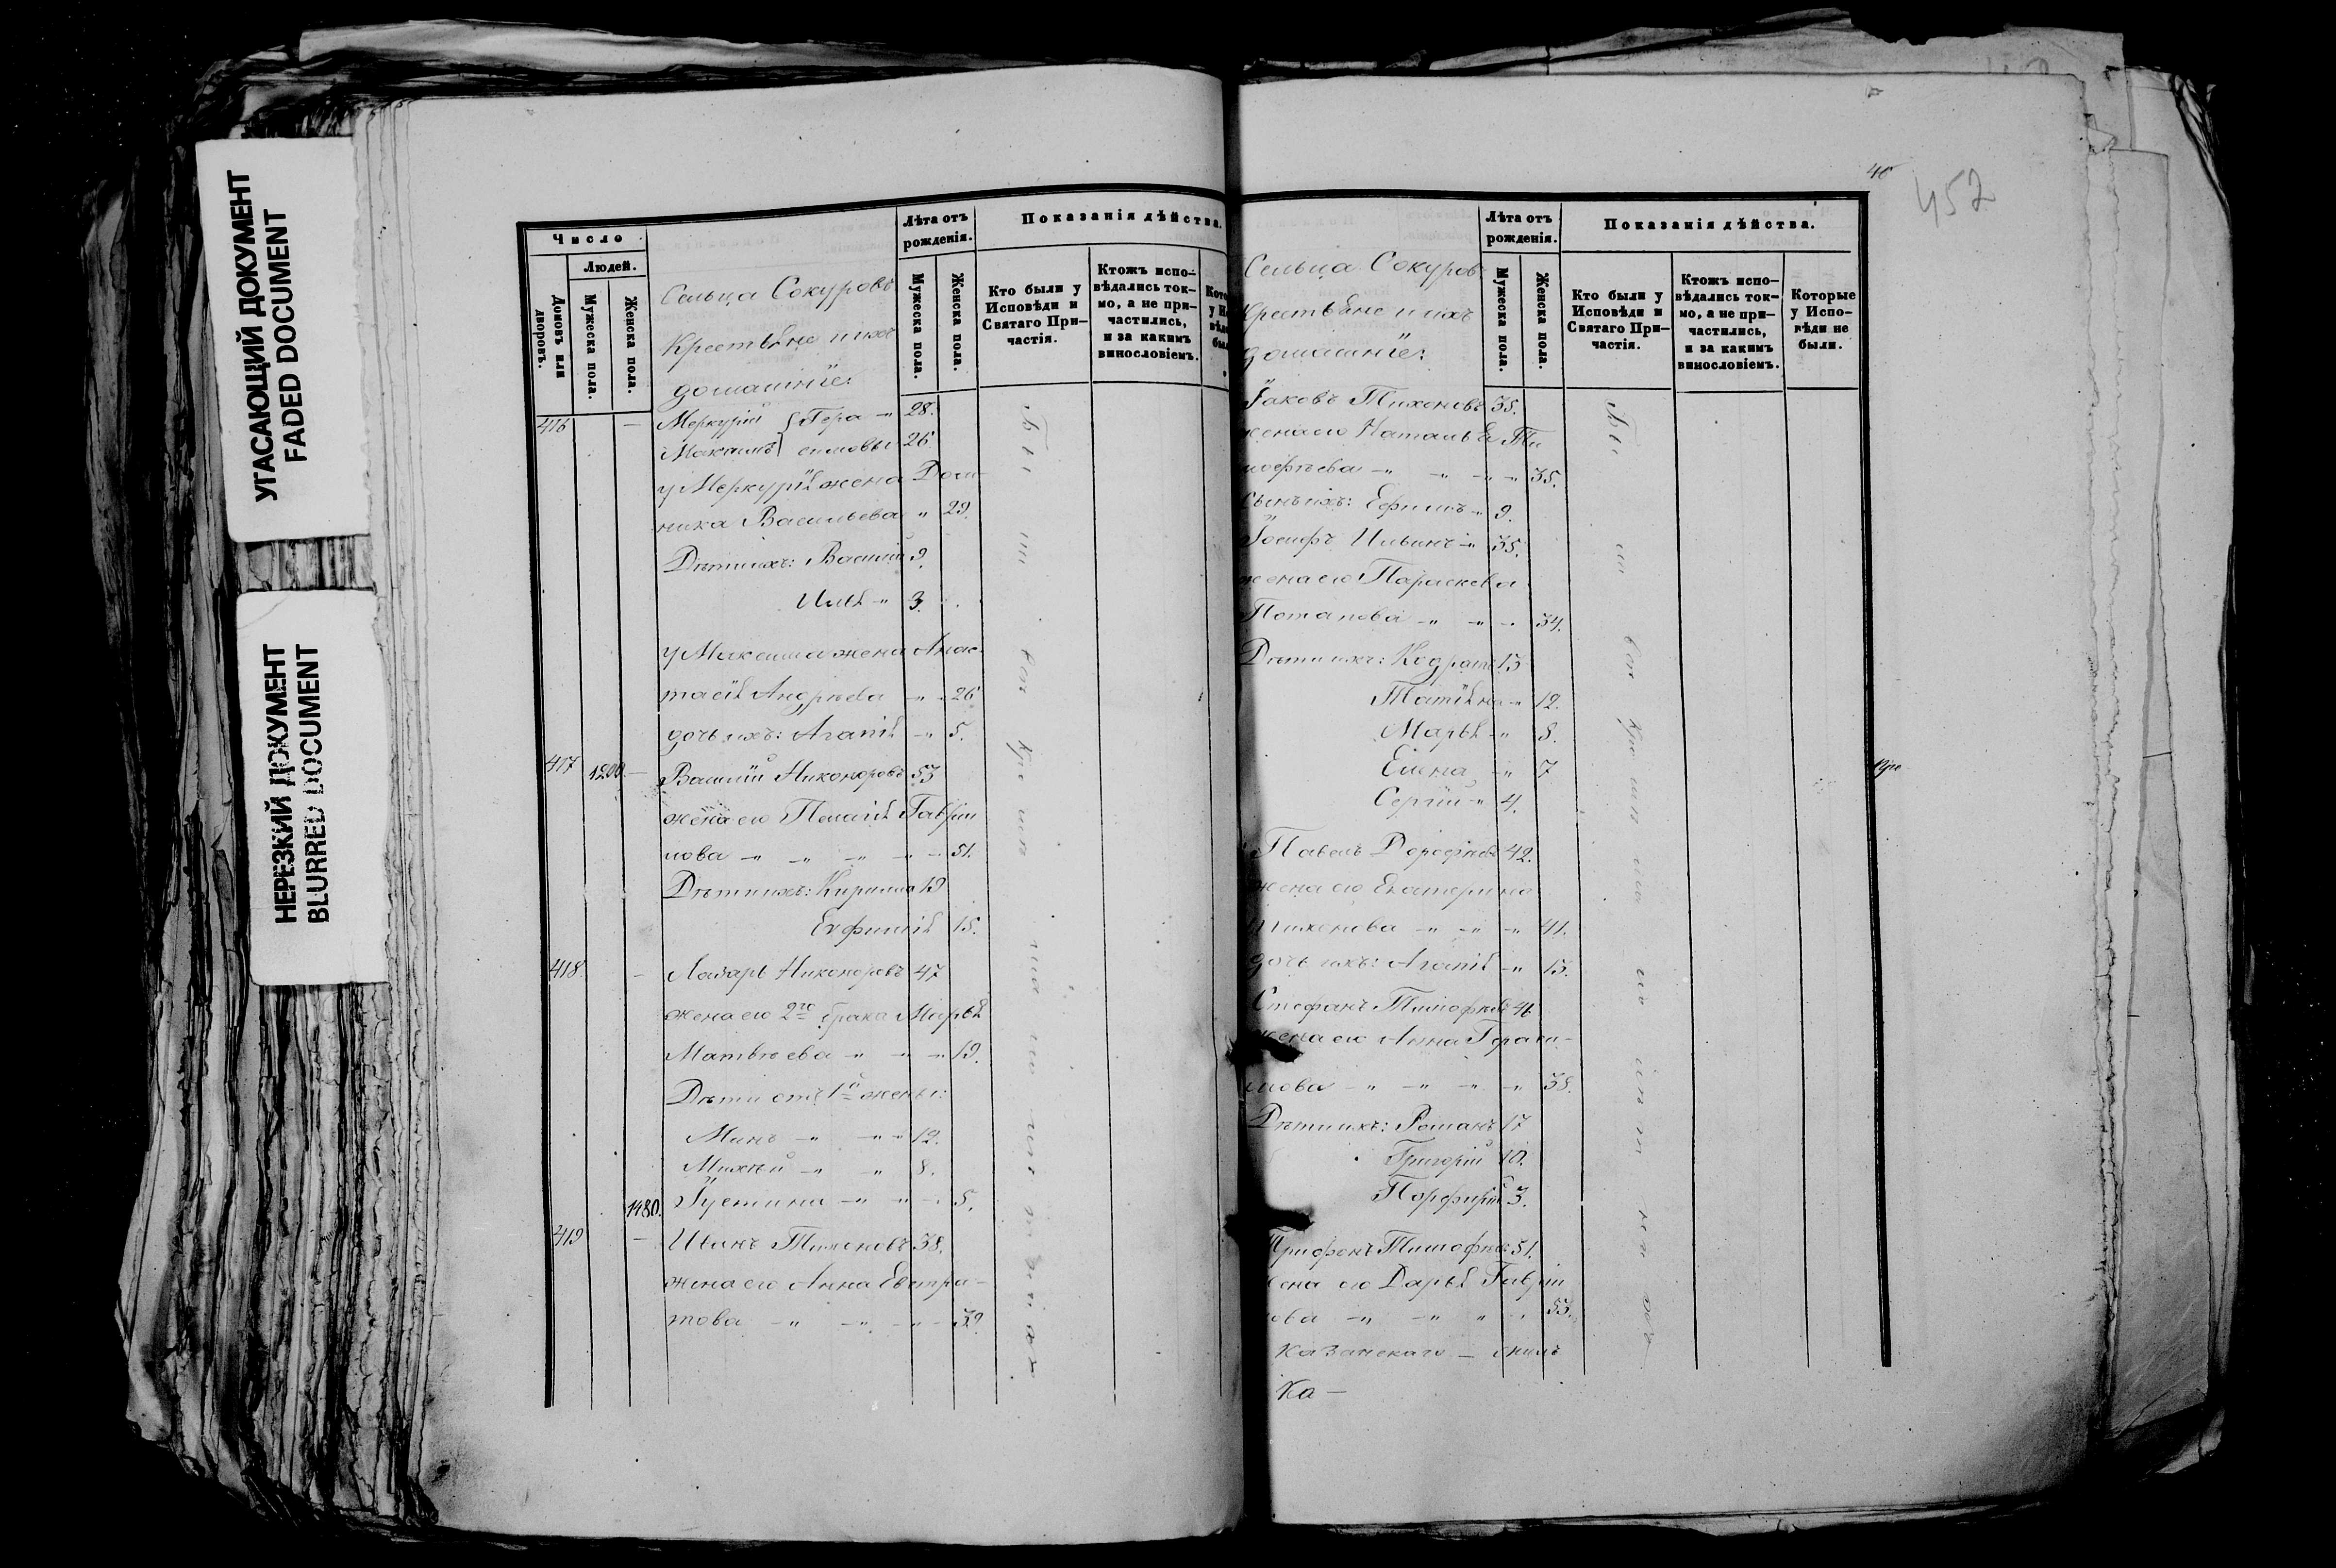 УГАСАЮЩИЙ ДОКУМЕНТ
FADED DOCUMENT
НЕРЕЗКИЙ ДОКУМЕНТ
BLURRED DOCUMENT
Число
Людей.
Домовъ или дворовъ.
Мужеска пола.
Женска пола.
Лѣта отъ рожденія.
Мужеска пола.
Женска пола.
Показанія дѣйства.
Кто были у Исповѣди и Святаго Причастія.
Ктожъ исповѣдались токмо, а не причастились, и за какимъ винословіемъ.
Сельца Сокурова
Крестьяне и ихъ
домашніе:
416 — Меркурій } Гера - 28.
Максимъ } симовы 26
у Меркурія жена Дом
ника Васильева " 29.
Дѣти ихъ: Василій 9.
Илья " 3.
у Максима жена Анас
тасія Андреева - " 26
дочь ихъ: Агапія - " 5.
417 1200. — Василій Никоноровъ 53
жена его Пелагія Гаврі
лова - " - " - " - " 51.
Дѣти ихъ: Кирилла 19
Евфимія 15.
418 — Лазарь Никоноровъ 47
жена его 2го брака Марья
Матвѣева - " - " - " 19.
Дѣти отъ 1й жены:
Минъ - " - " 12.
Михѣй - " " 8.
1480. Іустина - " - " 5.
419 — Иванъ Тихоновъ 38.
жена его Анна Евстра-
това - " - " - " 39.
Были
40
452
Лѣта отъ рожденія.
Мужеска пола.
Женска пола.
Показанія дѣйства.
Кто были у Исповѣди и Святаго Причастія.
Ктожъ исповѣдались токмо, а не причастились, и за какимъ винословіемъ.
Которые у Исповѣди не были.
Сельца Сокуров
Крестьяне и ихъ
домашніе:
Іаковъ Тихоновъ 35.
жена его Наталья Ти
мофѣева - " - " - " 35.
сынъ ихъ: Ефимъ - " 9.
Іосифъ Ильинъ - " 35.
жена его Параскева
Потапова - " - " 34.
Дѣти ихъ: Кодратъ 13
Татіяна - " 12.
Марья - " 8.
Елена - " 7
Сергій - " 4.
Павелъ Дорофѣевъ 42.
жена его Екатерина
Тихонова - " - " - " 41.
дочь ихъ: Агапія - " 13.
Стефанъ Тимофѣевъ 41.
жена его Анна Гераси-
мова - " - " - " 38.
Дѣти ихъ: Романъ 17
Григорій 10.
Порфирій 3.
Трифонъ Тимофѣев 51.
жена его Дарья Гаврі
лова - " - " " 53.
Казанскаго —
Ка —
Были